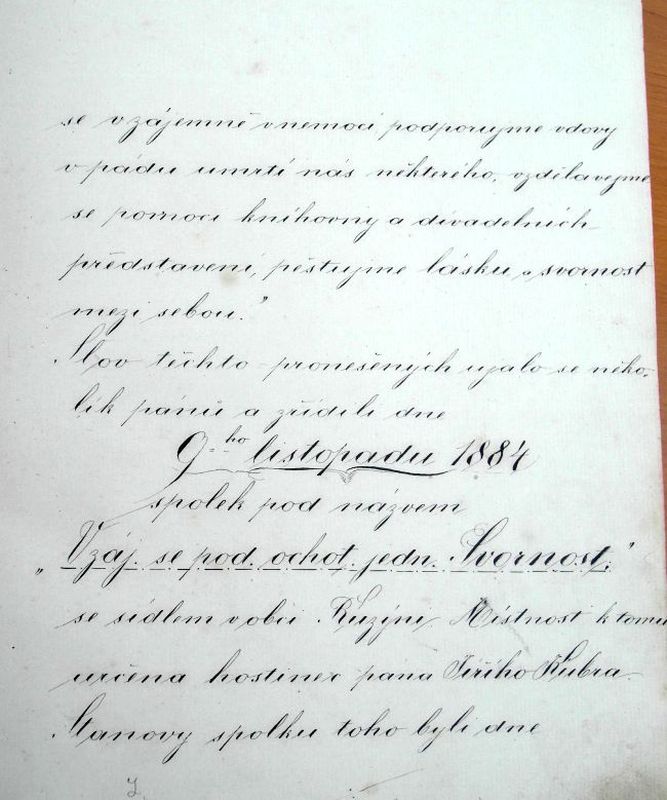 se vzájemně v nemoci podporujme vdovy
v pádu umrtí nás některého, vzdělavejme
se pomocí knihovny a divadelních
představení, pěstujme lásku a svornost
mezi sebou."
Slov těchto pronešených ujalo se něko-
lik pánů a zřídili dne
9.ho listopadu 1884
spolek pod názvem
„Vzáj. se pod. ochot. jedn. Svornost."
se sídlem v obci Ruzýni, Místnost k tomu
určena hostinec pana Jiřího Kubra.
Stanovy spolku toho byli dne